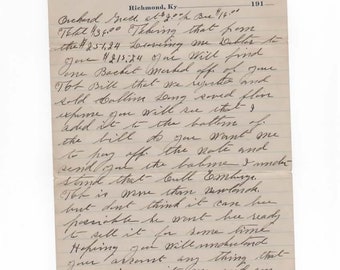 Richmond, Ky 191
Orchard Grass at $2.00 Bu $16.00
Total $34.00 Taking that from
the $257.24 Leaving me Debter to
you $215.24 you Will find
one Basket Marked off of your
Tob Bill that we rejected and
sold Collins Long saved flour
expense you Will see that I
added it to the bottom of
the bill Do you Want me
to pay off the Note and
send you the balance I under
stand that Cull Embrys
Tob is Worse than
but dont think it can be
possiable he Wont be ready
to sell it for some time
Hoping you Will understand
your account any thing that